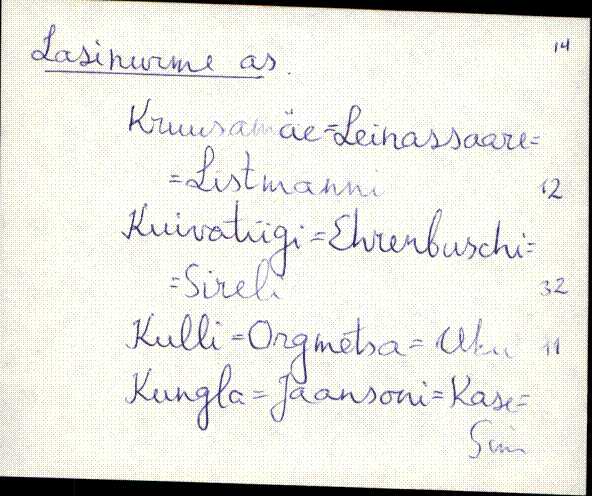 14
Lasinurme as.
Kruusamäe=Leinassaare=
=Listmanni 12
Kuivatiigi=Ehrenbuschi=
=Sireli 32
Kulli=Orgmetsa=Uku 11
Kungla=Jaansoni=Kase=